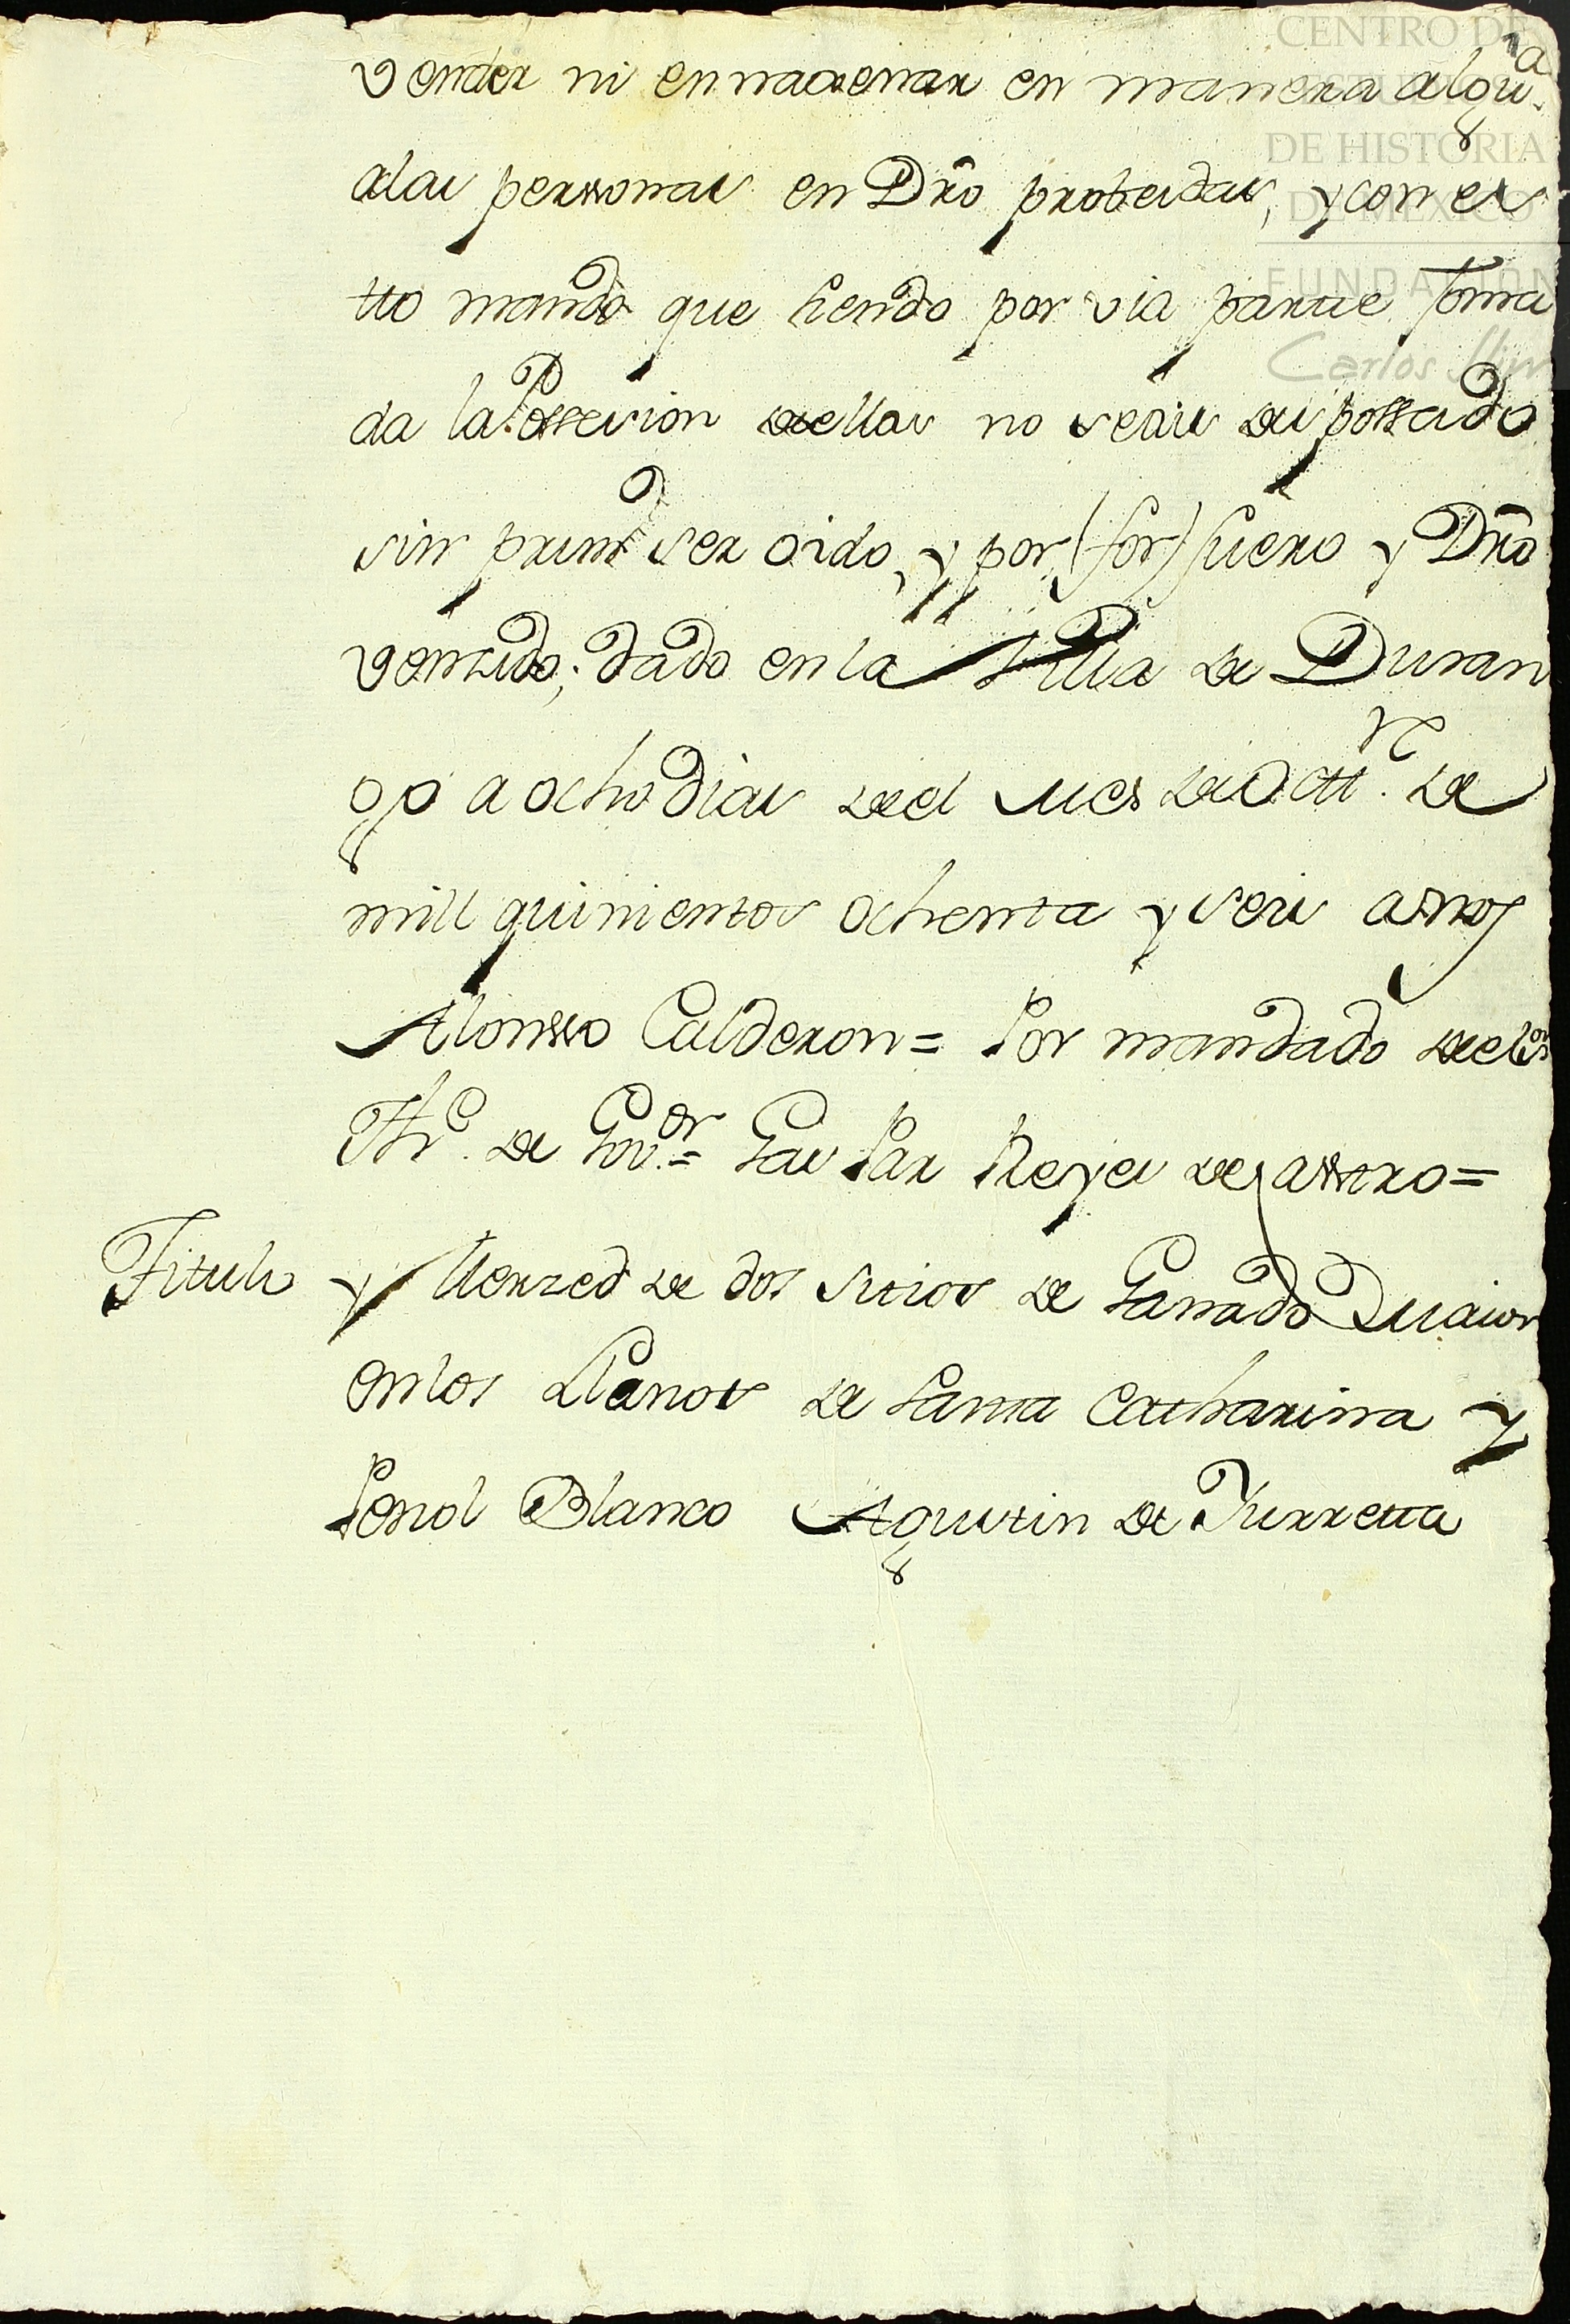 CENTRO DE
ESTUDIOS
DE HISTORIA
DE MEXICO
FUNDACIÓN
Carlos Slim
vender ni ennagenar en manera algu.na
alas perssonas en Dro. probeidas, y con es
tto mando que siendo por via partte toma
da la Possesion de ellas no seais desposseido
sin primo ser oido, y por (for) fuero y Dro
venzido; dado en la Villa de Duran
go a ocho dias de el Mes de Octt.re de
mill quinientos ochenta y seis años
Alonsso Calderon = Por mandado de el Sor
The. de Gov.or = Gas Par Reyes de Castro =
Titulo y Merzed de dos sitios de Ganado Maior
en los Llanos de Santa Catharina y
Penol Blanco Agustin de Yurretta